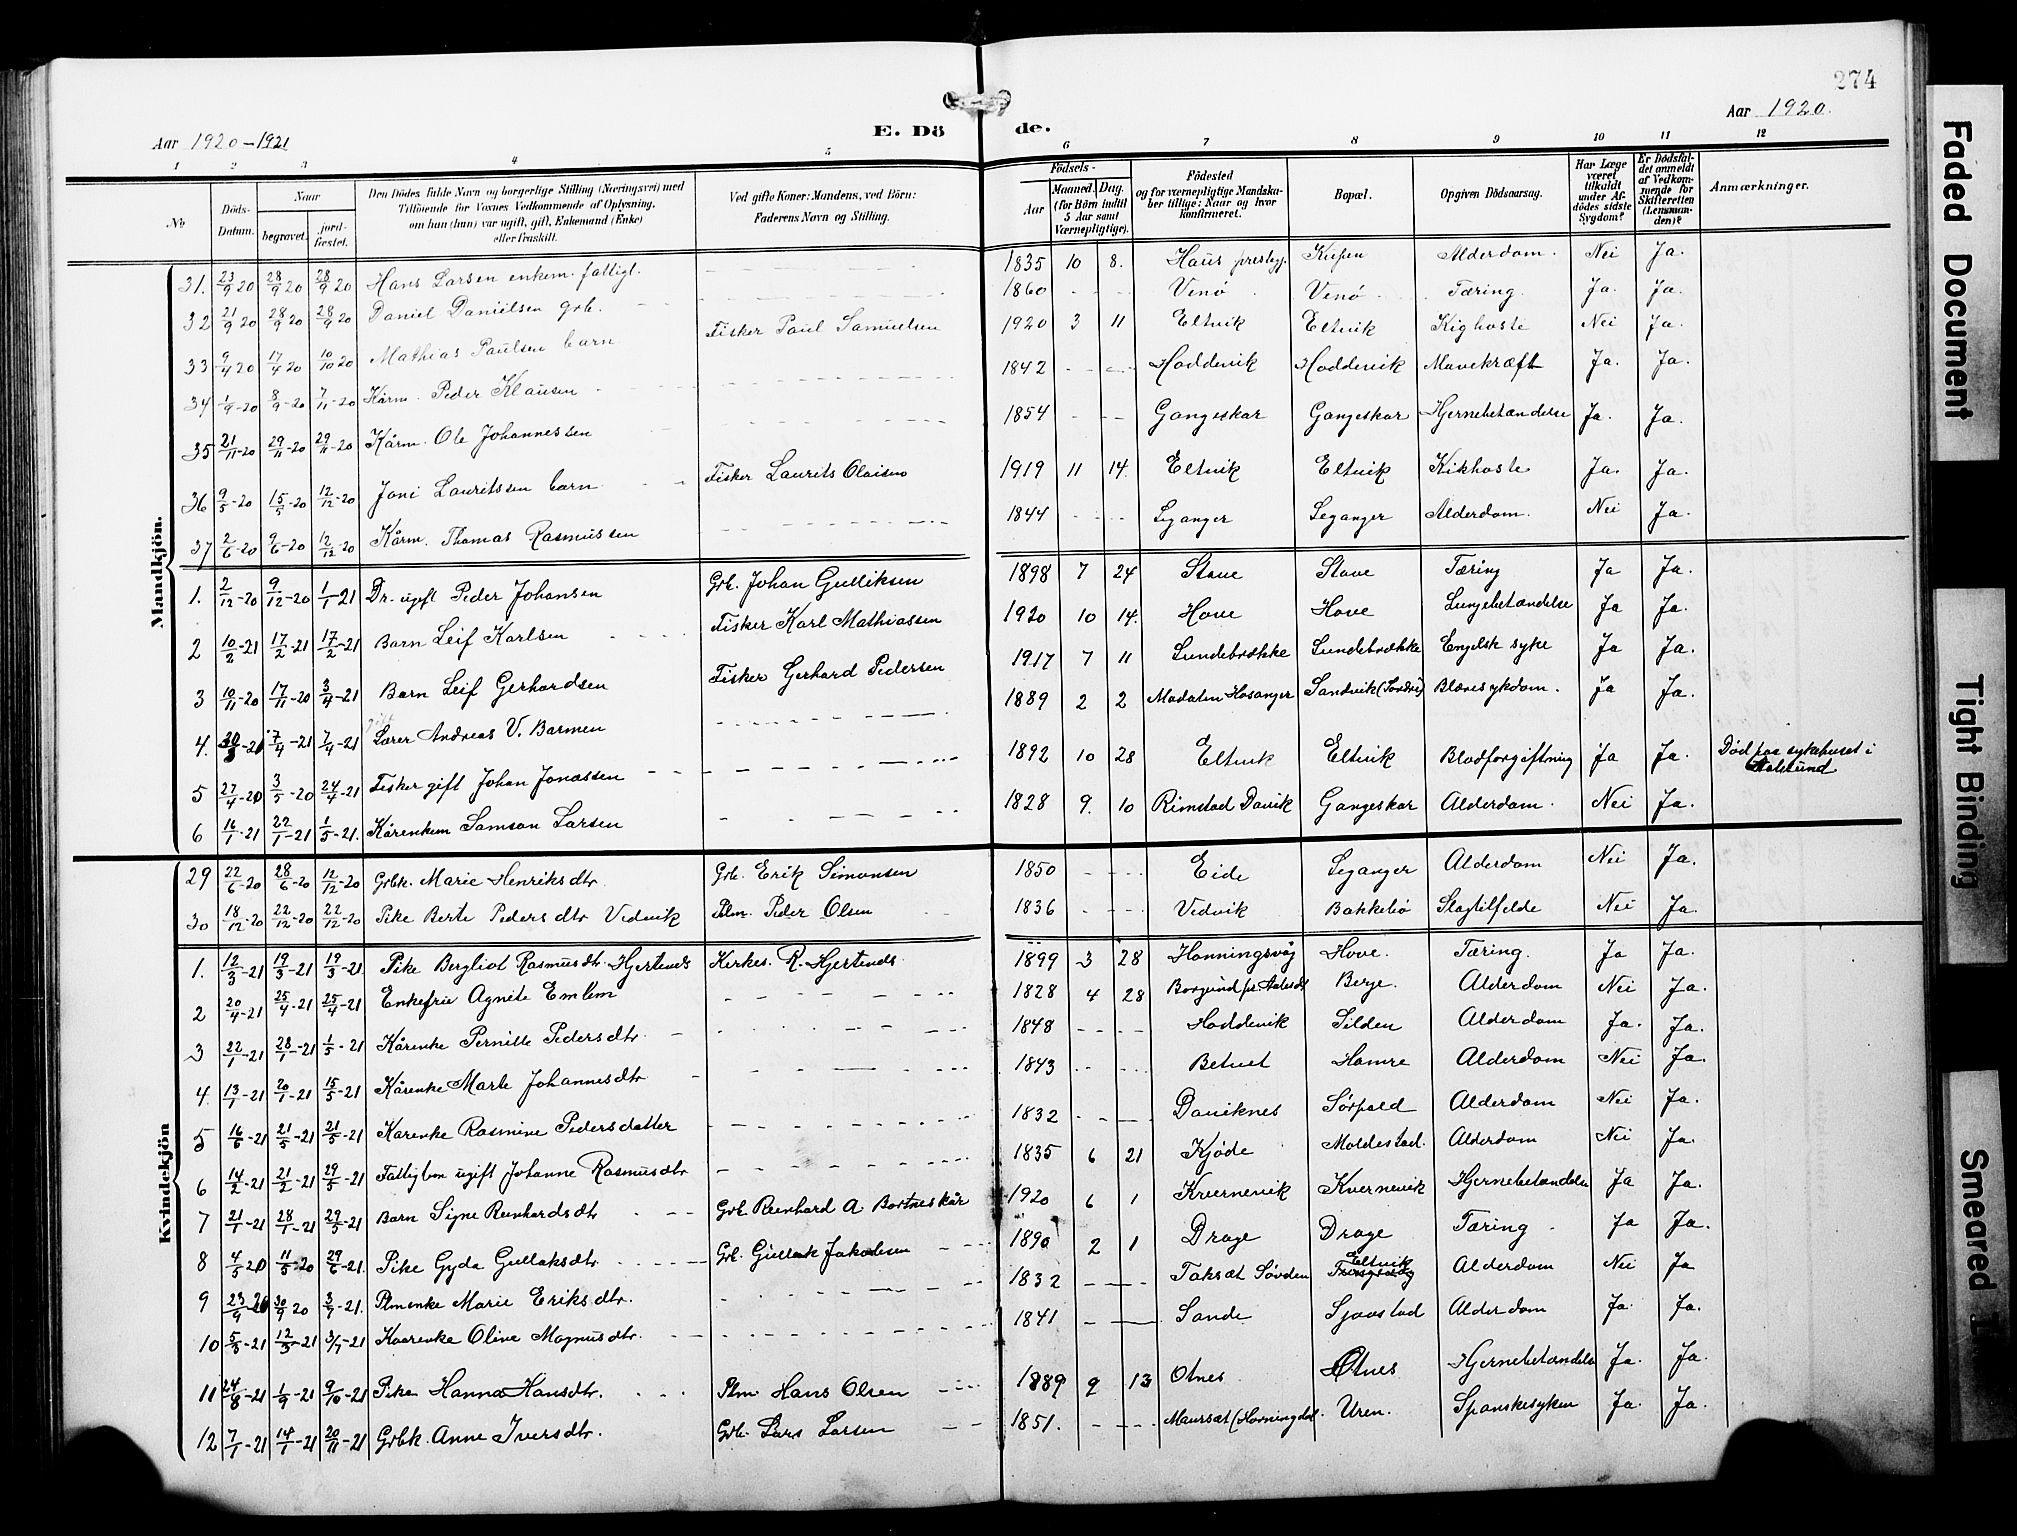 274
Aar 1920-1921
E. Dö de.
Aar 1920.
1 2 3 4 5 6 7 8 9 10 11 12
No
Döds-Datum.
Naar
begravet.
jord-fæstet.
Den Dödes fulde Navn og borgerlige Stilling (Næringsvei) med
Tilföiende for Voxnes Vedkommende af Oplysning,
om han (hun) var ugift, gift, Enkemand (Enke)
eller fraskilt.
Ved gifte Koner: Mandens, ved Börn:
Faderens Navn og Stilling.
Födsels-
Aar
Maaned. Dag.
(for Börn indtil
5 Aar samt
Værnepligtige).
Födested
og for værnepligtige Mandska-
ber tillige: Naar og hvor
konfirmeret.
Bopæl.
Opgiven Dödsaarsag.
Har Læge
været
tilkaldt
under Af-
dödes sidste
Sygdom?
Er Dödsfal-
det anmeldt
af Vedkom-
mende for
Skifteretten
(Lensman-
den)?
Anmærkninger.
Mandkjön.
31. 23/9 20 28/9 20 28/9 20 Hans Larsen enkem. fattigl. 1835 10 8. Haus prestegj. Alderdom. Nei Ja.
32 21/9 20 28/9 20 28/9 20 Daniel Danielsen grb. 1860 Venø Venø Tæring. Ja. Ja.
33 9/4 20 17/4 20 10/10 20 Mathias Paulsen barn Fisker Paul Samuelsen 1920 3 11 Eltvik Eltvik Kighoste Nei Ja.
34 1/9-20 8/9-20 7/11-20 Kårm. Peder Klausen 1842 Hoddevik Hoddevik Mavekræft Ja. Ja.
35 21/11-20 29/11-20 29/11-20 Kårm. Ole Johannessen 1854 Gangeskar Gangeskar Hjernebetændelse Ja. Ja.
36 9/5-20 15/5-20 12/12-20 Joni Lauritssen barn Fisker Laurits Olaisen 1919 11 14. Eltvik Eltvik Kikhoste Ja. Ja.
37 2/6-20 9/6-20 12/12-20 Kårm. Thomas Rasmussen 1844 Leganger Leganger Alderdom. Nei Ja.
1. 2/12-20 9/12-20 1/1-21 Dr. ugift Peder Johansen Grb. Johan Gulliksen 1898 7 24 Stave Stave Tæring Ja Ja.
2 10/2-21 17/2-21 17/2-21 Barn Leif Karlsen Fisker Karl Mathiassen 1920 10 14. Hove Hove Lungebetændelse Ja Ja.
3 10/11-20 17/11-20 3/4-21 Barn Leif Gerhardsen Fisker Gerhard Pedersen 1917 7 11 Lundebrække Lundebrække Engelsk syke Ja Ja.
4. 30/3-21 7/4-21 7/4-21 gift Lærer Andreas V. Barmen 1889 2 2 Madalen Hosanger Sandvik (Sondre) Blæresykdom. Ja Ja.
5 27/4-20 3/5-20 24/4-21 Fisker gift Johan Jonassen 1892 10 28 Eltvik Eltvik Blodforgiftning Ja Ja. Død paa sykehuset i
Aalesund
6 16/1-21 22/1-21 1/5-21. Kårenkem Samson Larsen 1828 9. 10 Rimstad Davik Gangeskar Alderdom. Nei Ja.
Kvindekjön
29 22/6-20 28/6-20 12/12-20 Grbk. Marie Henriksdtr. Grb. Erik Simonsen 1850 Eide Leganger Alderdom Nei Ja.
30 18/12-20 22/12-20 22/12-20 Pike Berte Pedersdtr Vedvik Plm. Peder Olsen 1836 Vedvik Bakkebø Slagtilfelde Nei Ja.
1. 12/3-21 19/3-21 19/3-21 Pike Bergliot Rasmusdtr. Hjertenes Kirkes. R. Hjertenes 1899 3 28 Honningsvåg Hove. Tæring. Ja Ja.
2 20/4-21 25/4-21 25/4-21 Enkefrue Agnete Emlem 1828 4 28 Borgund pr. Aalesd. Berge. Alderdom Nei Ja.
3 22/1-21 28/1-21 1/5-21 Kårenke Pernille Pedersdtr. 1848 Hoddevik Silden Alderdom Ja. Ja.
4. 13/1-21 20/1-21 15/5-21 Kårenke Marte Johannesdtr 1843 Hamre Alderdom Nei Ja.
5 16/6-21 21/5-21 21/5-21 Kårenke Rasmine Pedersdatter 1832 Daviknes Sørpold Alderdom Nei Ja.
6 14/2-21 21/2-21 29/5-21 Fattiglem ugift Johanne Rasmusdtr 1835 6 21 Kjøde Moldestad. Alderdom Nei Ja.
7 21/1-21 28/1-21 29/3-21 Barn Signe Reinhardsdtr Grb. Reinhard A Bortneskår 1920 6 1 Kvernevik Kvernevik Hjernebetændelse Ja Ja.
8 4/5 20 11/5-20 29/6-21. Pike Gyda Gullaksdtr. Grb. Gullak Jakobsen 1890 2 1 Drage Drage Tæring Ja Ja.
9 23/9-20 30/9 20 3/7-21. Plmenke Marie Eriksdtr. 1832 Taksæt Søvden Eltvik Alderdom Nei Ja
10 5/3-21 12/3-21 3/7-21 Kaarenke Olive Magnusdtr. 1841 Sande Sjaastad Alderdom Ja. Ja.
11 24/8-21 1/9-21 9/10-21 Pike Hanna Hansdtr. Plm Hans Olsen 1889 9 13 Otnes Otnes Hjernebetændelse Ja. Ja.
12 7/1-21 14/1-21 20/11-21 Grbk. Anne Iversdtr. Grb. Lars Larsen 1851. Maursæt (Horningdal. Uren. Spanskesyken Ja. Ja.
Faded Document
Tight Binding
Smeared